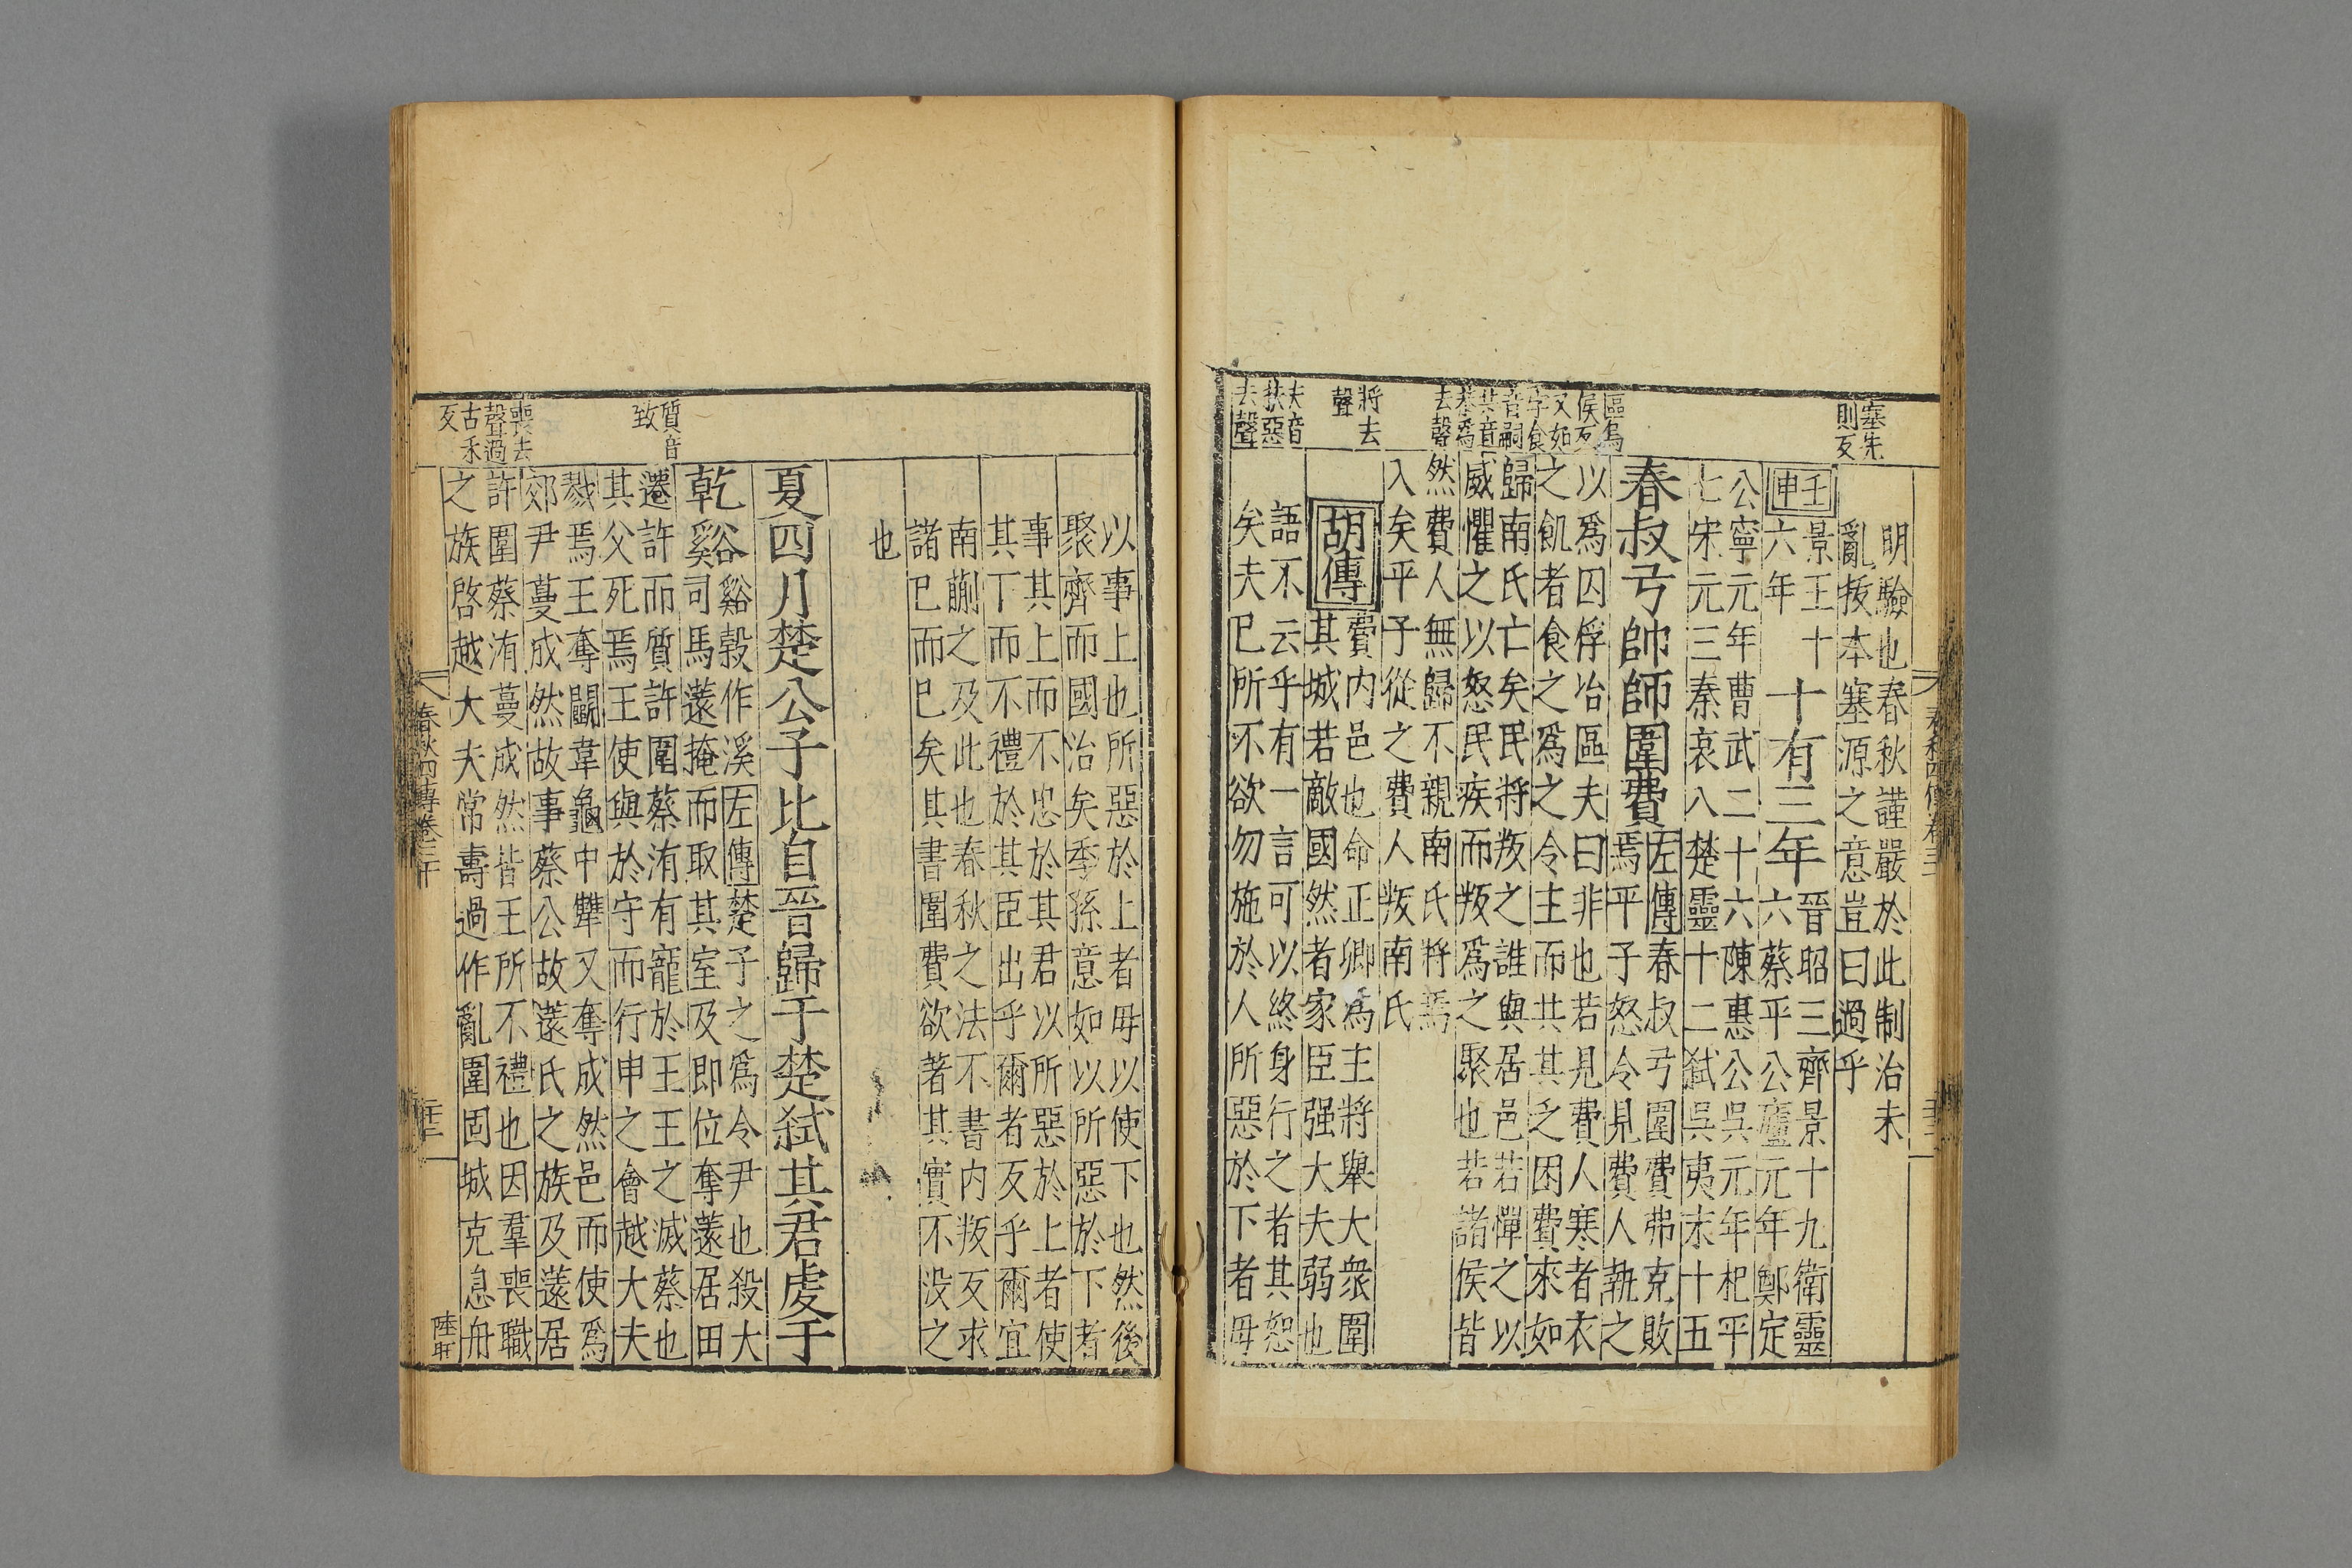 塞先
則反
明驗也春秋謹嚴於此制治未
亂拔本塞源之意豈曰過乎
壬申
景王十
六年
十有三年
晉昭三齊景十九衛靈
六蔡平公廬元年鄭定
公寧元年曹武二十六陳惠公吳元年杞平
七宋元三秦哀八楚靈十二弒吳夷末十五
春叔弓帥師圍費
左傳春叔弓圍費弗克敗
焉平子怒令見費人執之
區烏
侯反
又如
字食
音嗣
共音
恭爲
去聲
以爲囚俘冶區夫曰非也若見費人寒者衣
之飢者食之爲之令主而共其乏困費來如
歸南氏亡矣民將叛之誰與居邑若憚之以
威懼之以怒民疾而叛爲之聚也若諸侯皆
然費人無歸不親南氏將焉
入矣平子從之費人叛南氏
將去
聲
胡傳
費內邑也命正卿爲主將舉大衆圍
其城若敵國然者家臣强大夫弱也
夫音
扶惡
去聲
語不云乎有一言可以終身行之者其恕
矣夫已所不欲勿施於人所惡於下者毋
春秋四傳卷三
以事上也所惡於上者毋以使下也然後
聚齊而國治矣季孫意如以所惡於下者
事其上而不忠於其君以所惡於上者使
其下而不禮於其臣出乎爾者反乎爾宜
南蒯之及此也春秋之法不書內叛反求
諸已而已矣其書圍費欲著其實不没之
也
夏四月楚公子比自晉歸于楚弒其君虔于
乾谿
谿穀作溪左傳楚子之爲令尹也殺大
司馬薳掩而取其室及即位奪薳居田
質音
致
遷許而質許圍蔡洧有寵於王王之滅蔡也
其父死焉王使與於守而行申之會越大夫
戮焉王奪鬬韋龜中犫又奪成然邑而使爲
郊尹蔓成然故事蔡公故薳氏之族及薳居
喪去
聲過
古禾
反
許圍蔡洧蔓成然皆王所不禮也因羣喪職
之族啓越大夫常壽過作亂圍固城克息舟
春秋四傳卷三十